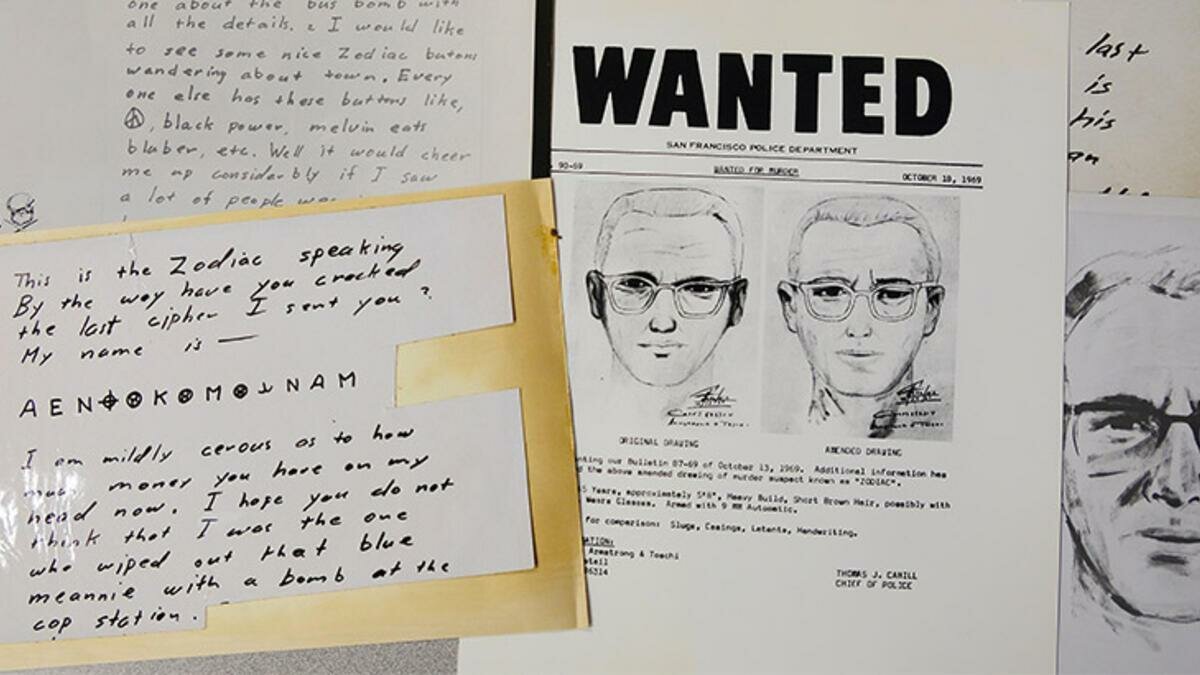 one about the bus bomb with
all the details. I would like
to see some nice Zodiac butons
wandering about town. Every
one else has these buttons like,
, black power, melvin eats
bluber, etc. Well it would cheer
me up considerbly if I saw
a lot of people
This is the Zodiac speaking
By the way have you cracked
the last cipher I sent you?
My name is —
AEN⌖⊗K⊗M⊗⅃NAM
I am mildly cerous as to how
much money you have on my
head now. I hope you do not
think that I was the one
who wiped out that blue
meannie with a bomb at the
cop station.
WANTED
SAN FRANCISCO POLICE DEPARTMENT
90-69 WANTED FOR MURDER OCTOBER 18, 1969
ORIGINAL DRAWING AMENDED DRAWING
our Bulletin 87-69 of October 13, 1969. Additional information has
the above amended drawing of murder suspect known as "ZODIAC".
Years, approximately 5'8", Heavy Build, Short Brown Hair, possibly with
Wears Glasses. Armed with 9 MM Automatic.
for comparison: Slugs, Casings, Latents, Handwriting.
Armstrong & Toschi
THOMAS J. CAHILL
CHIEF OF POLICE
last
is
his